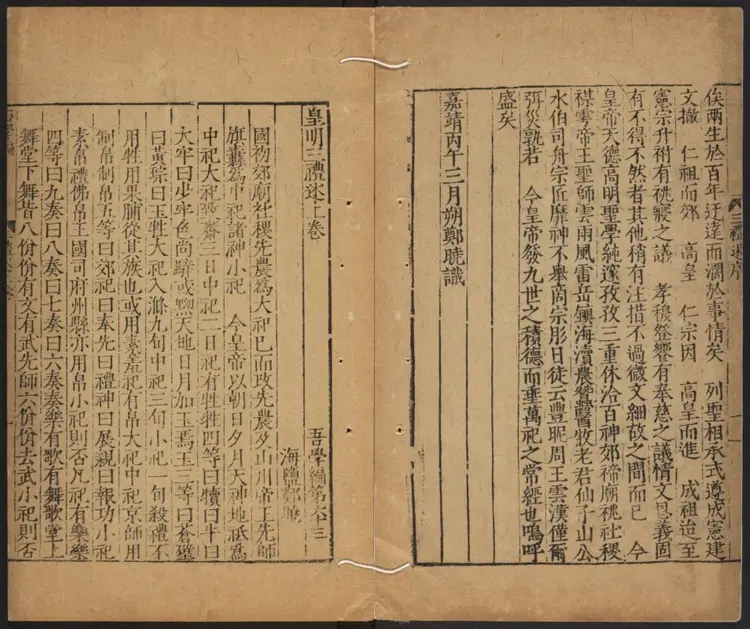 俟兩生於百年迂遠而濶於事情矣 列聖相承式遵成憲建
文撤 仁祖而郊 高皇 仁宗因 高皇而進 成祖迨至
憲宗升祔有祧寢之議 孝穆登饗有奉慈之議情文思義固
有不得不然者其他稍有注措不過微文細故之間而已 今
皇帝天德高明聖學純邃孜孜三重休洽百神郊禘廟祧社稷
禖雩帝王聖師雲雨風雷岳鎮海瀆農蠶醫牧老君仙子山公
水伯司舟宗正靡神不舉商宗肜日徒云豐昵周王雲漢僅爾
弭災孰若 今皇帝發九世之積德而垂萬祀之常經也嗚呼
盛矣
嘉靖丙午三月朔鄭曉識
三禮述序
皇明三禮述上卷 吾學編第六十三
海鹽鄭曉
國初郊廟社稷先農為大祀已而改先農及山川帝王先師
旗纛為中祀諸神小祀 今皇帝以朝日夕月天神地祇為
中祀大祀致齋三日中祀二日祀有牲牲四等曰犢曰牛曰
太牢曰少牢色尚騂或黝天地日月加玉焉玉三等曰蒼璧
曰黃琮曰玉牲大祀入滌九旬中祀三旬小祀一旬殺禮不
用牲用果脯從其族也或用素羞祀有帛大祀中祀京師用
制帛制帛五等曰郊祀曰奉先曰禮神曰展親曰報功小祀
素帛禮佛帛王國司府州縣亦用帛小祀則否凡祀有樂樂
四等曰九奏曰八奏曰七奏曰六奏奏樂有歌有舞歌堂上
舞堂下舞皆八佾佾有文有武先師六佾佾去武小祀則否